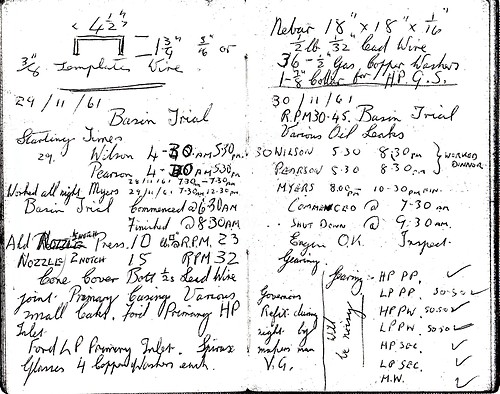 4 1/2"
1 3/4" 5/16 or
3/8" Templates Wire
29/11/61
Basin Trial
Starting Times
29. Wilson 4-30 AM 5.30 PM.
Pearson 4-30 AM 5.30 PM
28/11/61 7.30 PM - 7.30 AM
Worked all night. Myers 29/11/61 7.30 PM 12.30 PM.
Basin Trial Commenced @ 6.30 AM
Finished @ 8.30 AM
Ahd Nozzle Press. 10 RPM. 23
Nozzle 2 NOTCH 15 RPM 32
Cone Cover Bott 1/32 Lead Wire
joint. Primary Casing Various
small leaks. foil Primary HP
Inlet.
Ford LP Primary Inlet. Spirax
Glasses 4 Copper Washers each.
Nebar 18" x 18" x 1/16"
1/2 lb 1/32" Lead Wire
36 - 1/2" Gas. Copper Washers
1 - 7/8" Cotter for H.P.G.S.
30/11/61
R.P.M 30-45. Basin Trial
Various Oil Leaks
30 WILSON 5.30 8.30 PM
PEARSON 5.30 8.30 PM
WORKED DINNOR
MYERS 8.00 PM 10-30 PM
COMMENCED @ 7-30 AM
SHUT DOWN @ 9.30 AM.
Engine O.K. Inspect.
Gearing.
Governors
Refit during
night by
makers man
V.G.
Gearing:- HP PP. ✓
LP PP. 50.50 ✓
HP PW. 50.50 ✓
LP PW. 50.50 ✓
HP SEC. ✓
LP SEC. ✓
M.W. ✓
be noisy